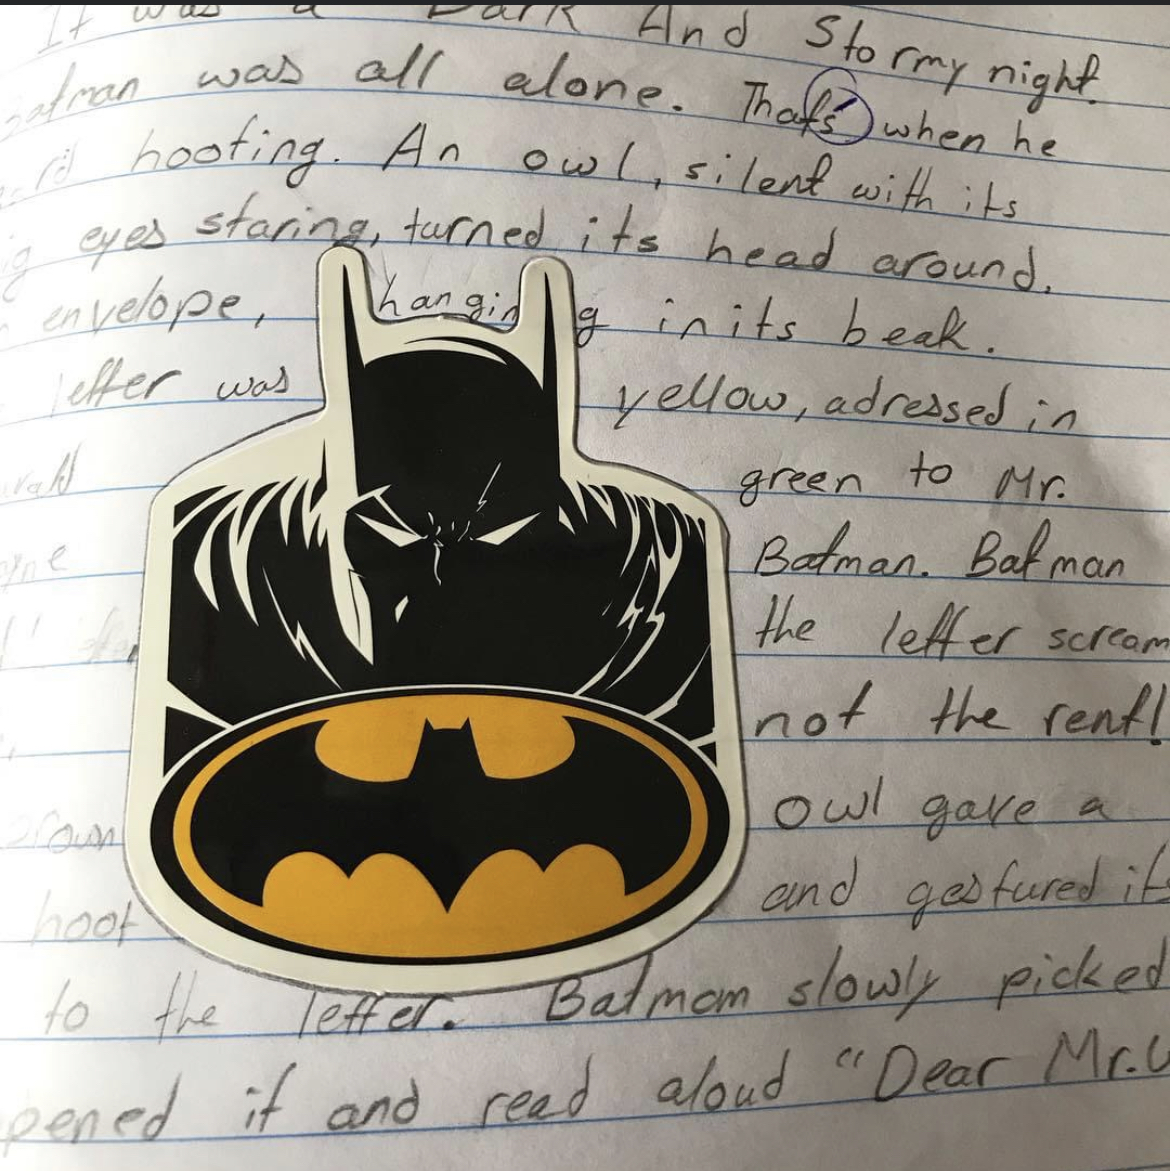 It was a Dark And Stormy night.
Batman was all alone. That's when he
hooting. An owl, silent with its
eyes staring, turned its head around.
envelope, hanging in its beak.
letter was yellow, adressed in
green to Mr.
Batman. Batman
the letter scream
not the rent!
owl gave a
hoot and gestured its
to the letter. Batman slowly picked
pened it and read aloud "Dear Mr.